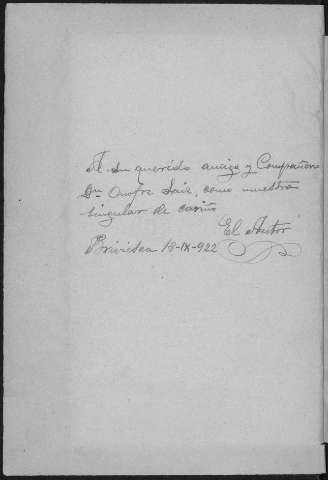 A su querido amigo y Compañero
Dn Onofre Saiz, como muestra
singular de cariño
El Autor
Briviesca 18-IX-922